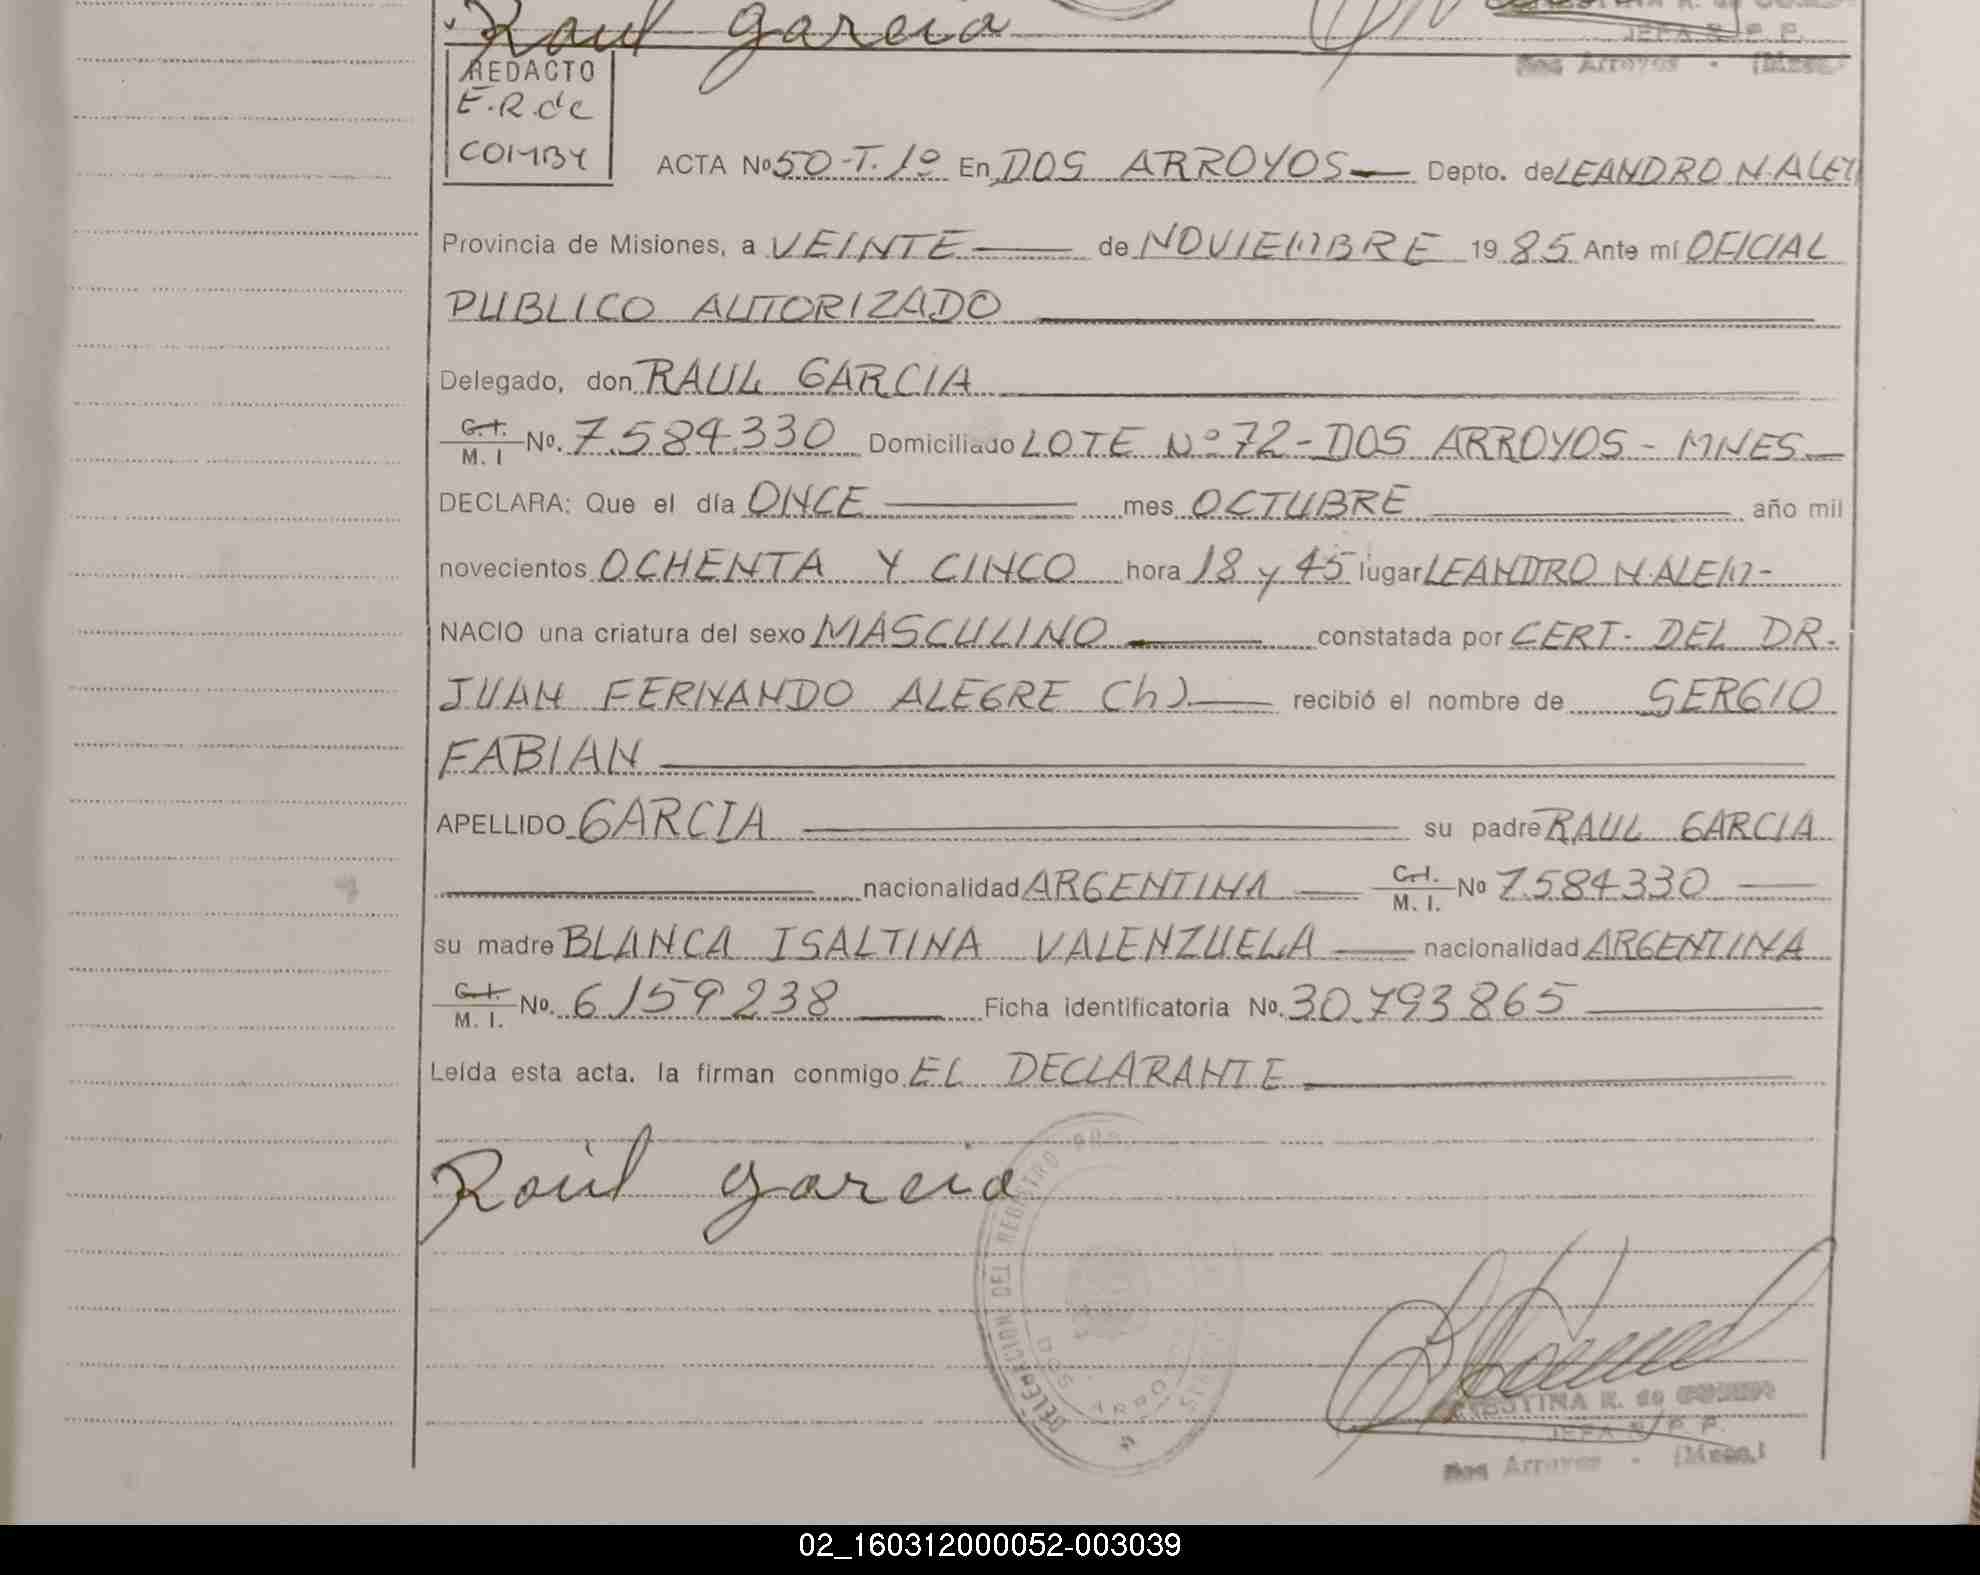 Raul Garcia
JEFA R. P. P.
Dos Arroyos - (Mnes.)
REDACTO
E.R.de
COIMBY
ACTA Nº 50-T.1º En DOS ARROYOS Depto. de LEANDRO N.ALEM
Provincia de Misiones, a VEINTE de NOVIEMBRE 1985 Ante mí OFICIAL
PUBLICO AUTORIZADO
Delegado, don RAUL GARCIA
C.I. M. I Nº. 7.584.330 Domiciliado LOTE Nº 72 - DOS ARROYOS - MNES
DECLARA: Que el día ONCE mes OCTUBRE año mil
novecientos OCHENTA Y CINCO hora 18 y 45 lugar LEANDRO N.ALEM-
NACIO una criatura del sexo MASCULINO constatada por CERT. DEL DR.
JUAN FERNANDO ALEGRE (h) recibió el nombre de SERGIO
FABIAN
APELLIDO GARCIA su padre RAUL GARCIA
nacionalidad ARGENTINA C.I. M. I. Nº 7.584.330
su madre BLANCA ISALTINA VALENZUELA nacionalidad ARGENTINA
C.I. M. I. Nº. 6159238 Ficha identificatoria Nº. 30.793.865
Leída esta acta, la firman conmigo EL DECLARANTE
Raúl Garcia
DELEGACION DEL REGISTRO
DOS ARROYOS
R. de
JEFA R. P. P.
Dos Arroyos - (Mnes.)
02_160312000052-003039